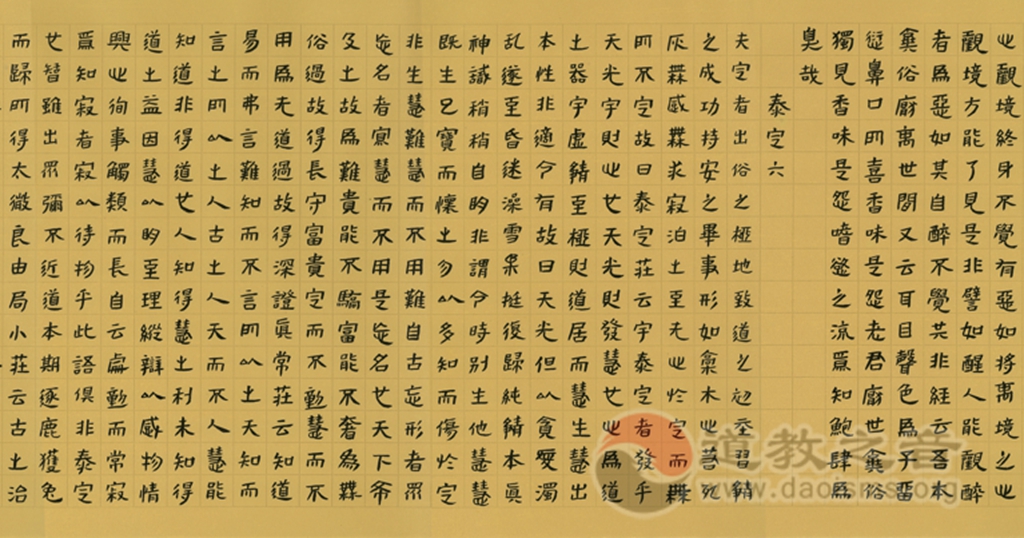 心觀境終身不覺有惡如將离境之心
觀境方能了見是非譬如醒人能觀醉
者爲惡如其自醉不覺其非經云吾本
棄俗厭离世間又云耳目聲色爲予留
愆鼻口所喜香味是怨老君厭世棄俗
獨見香味是怨嗜慾之流焉知鮑肆爲
臭哉
泰定六
夫定者出俗之極地致道之初基習靜
之成功持安之畢事形如槁木心若死
灰無感無求寂泊之至无心於定而無
所不定故曰泰定莊云宇泰定者發乎
天光宇則心也天光則發慧也心爲道
之器宇虛靜至極則道居而慧生慧出
本性非適今有故曰天光但以貪愛濁
亂遂至昏迷澡雪柔挺復歸純靜本真
神識稍稍自明非謂今時別生他慧慧
既生已寶而懷之勿以多知而傷於定
非生慧難慧而不用難自古忘形者眾
忘名者寡慧而不用是忘名也天下希
及之故爲難貴能不驕富能不奢爲無
俗過故得長守富貴定而不動慧而不
用爲无道過故得深證真常莊云知道
易而弗言難知而不言所以之天知而
言之所以之人古之人天而不人慧能
知道非得道也人知得慧之利未知得
道之益因慧以明至理縱辯以感物情
興心徇事觸類而長自云處動而常寂
焉知寂者寂以待物乎此語俱非泰定
也智雖出眾彌不近道本期逐鹿獲兔
而歸所得太微良由局小莊云古之治
道教之音
www.daoisms.org